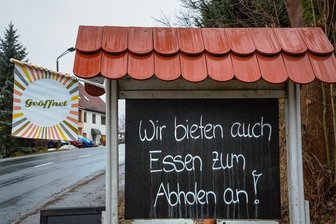 Geöffnet
Wir bieten auch
Essen zum
Abholen an!